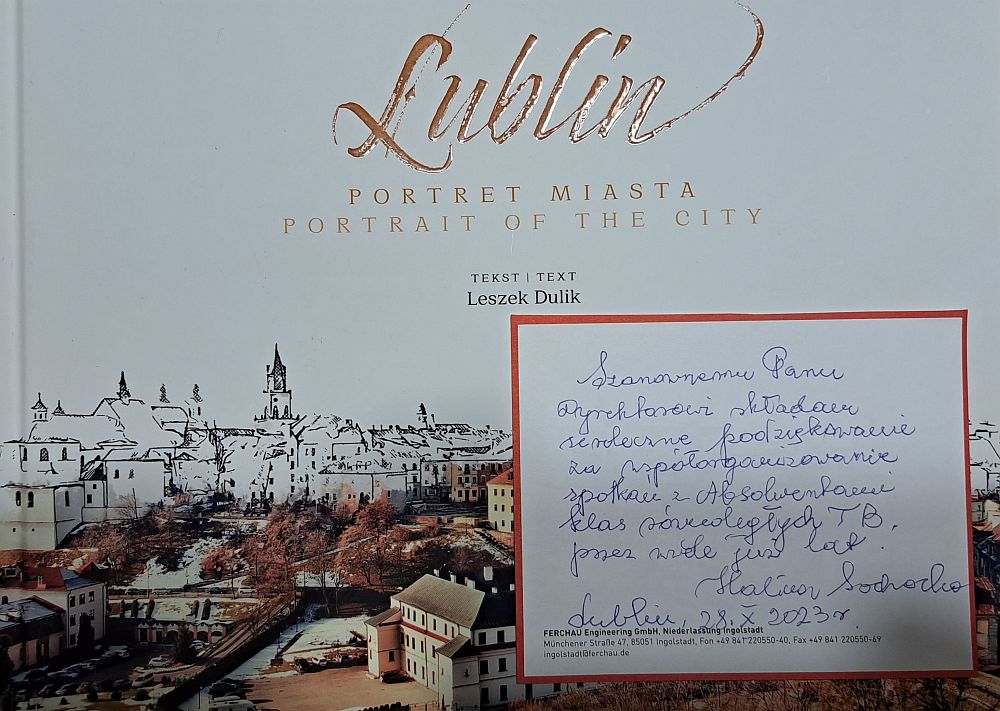 Lublin
PORTRET MIASTA
PORTRAIT OF THE CITY
TEKST | TEXT
Leszek Dulik
Szanownemu Panu
Dyrektorowi składam
serdeczne podziękowanie
za współorganizowanie
spotkań z Absolwentami
klas równoległych TB.
przez wiele już lat.
Halina
Lublin, 28.X 2023r.
FERCHAU Engineering GmbH, Niederlassung Ingolstadt
Münchener Straße 47, 85051 Ingolstadt, Fon +49 841 220550-40, Fax +49 841 220550-69
ingolstadt@ferchau.de